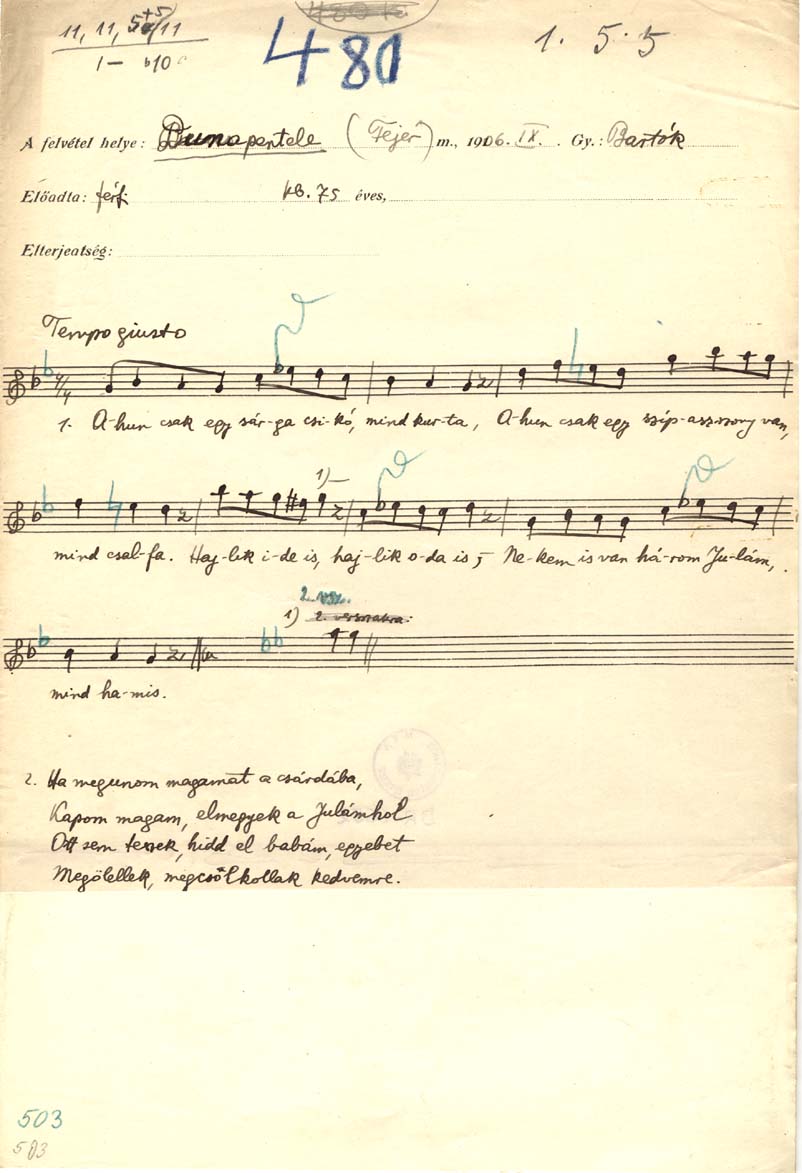 480
11, 11, 5+5, 11
1. 5. 5
1 – b10
480
A felvétel helye: Dunapentele (Fejér) m., 1906. IX. Gy.: Bartók
Előadta: férfi kb. 75 éves,
Elterjedtség:
Tempo giusto
1. A-hun csak egy sár-ga csi-kó, mind kur-ta, A-hun csak egy szíp-asz-szony van,
1)
mind csal-fa. Haj-lik i-de is, haj-lik o-da is, Ne-kem is van há-rom Ju-lám,
2. vsz.
1) 2. versszakra:
mind ha-mis.
2. Ha megunom magamat a csárdába,
Kapom magam, elmegyek a Julámhol
Ott sem teszek, hidd el babám, egyebet
Megölellek, megcsólkollak kedvemre.
503
503